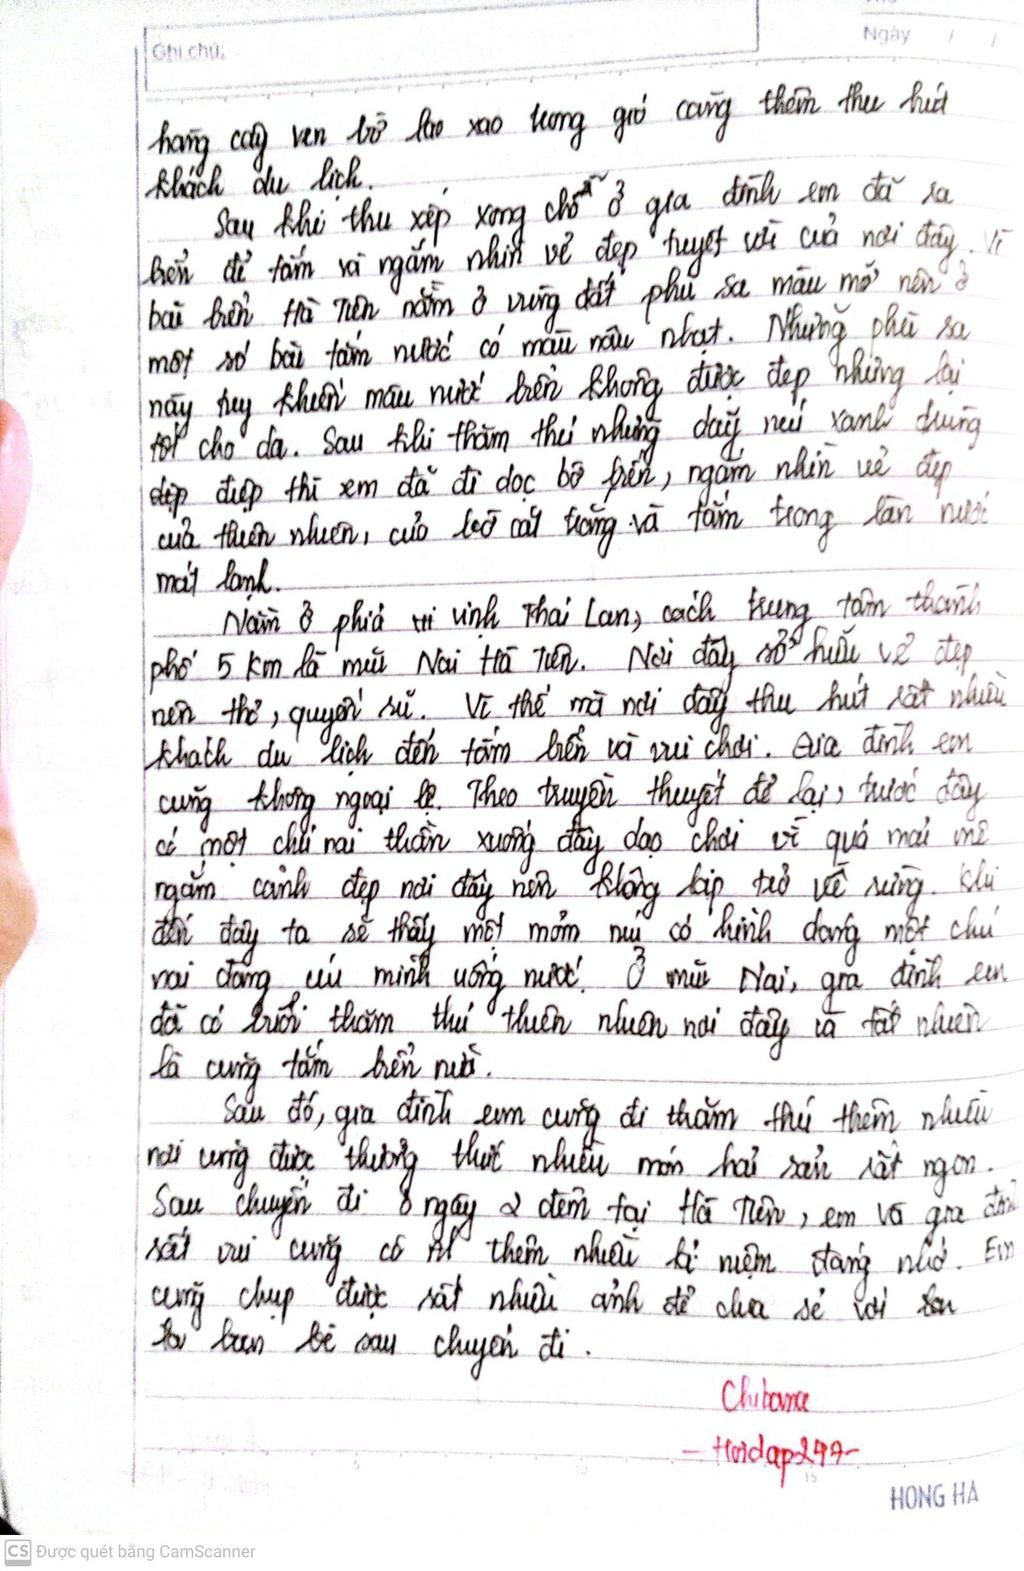 Ghi chú:
Ngày / /
hàng cây ven bờ lao xao trong gió càng thêm thu hút
khách du lịch.
Sau khi thu xếp xong chỗ ở gia đình em đã ra
biển để tắm và ngắm nhìn vẻ đẹp tuyệt vời của nơi đây. Vì
bãi biển Hà Tiên nằm ở vùng đất phù sa màu mỡ nên ở
một số bãi tắm nước có màu nâu nhạt. Nhưng phù sa
này tuy khiến màu nước biển không được đẹp nhưng lại
tốt cho da. Sau khi thăm thú những dãy núi xanh trùng
điệp thì em đã đi dọc bờ biển, ngắm nhìn vẻ đẹp
của thiên nhiên, của bờ cát trắng và tắm trong làn nước
mát lạnh.
Nằm ở phía vịnh Thái Lan, cách trung tâm thành
phố 5 km là mũi Nai Hà Tiên. Nơi đây sở hữu vẻ đẹp
nên thơ, quyến rũ. Vì thế mà nơi đây thu hút rất nhiều
khách du lịch đến tắm biển và vui chơi. Gia đình em
cũng không ngoại lệ. Theo truyền thuyết để lại, trước đây
có một chú nai thần xuống đây dạo chơi vì quá mải mê
ngắm cảnh đẹp nơi đây nên không kịp trở về rừng. Khi
đến đây ta sẽ thấy một mỏm núi có hình dạng một chú
nai đang cúi mình uống nước. Ở mũi Nai, gia đình em
đã có buổi thăm thú thiên nhiên nơi đây và tất nhiên
là cũng tắm biển nữa.
Sau đó, gia đình em cũng đi thăm thú thêm nhiều
nơi cũng được thưởng thức nhiều món hải sản rất ngon.
Sau chuyến đi 3 ngày 2 đêm tại Hà Tiên, em và gia đình
rất vui cũng có thêm nhiều kỉ niệm đáng nhớ. Em
cũng chụp được rất nhiều ảnh để chia sẻ với
bạn bè sau chuyến đi.
-Hoidap247-
HONG HA
CS Được quét bằng CamScanner